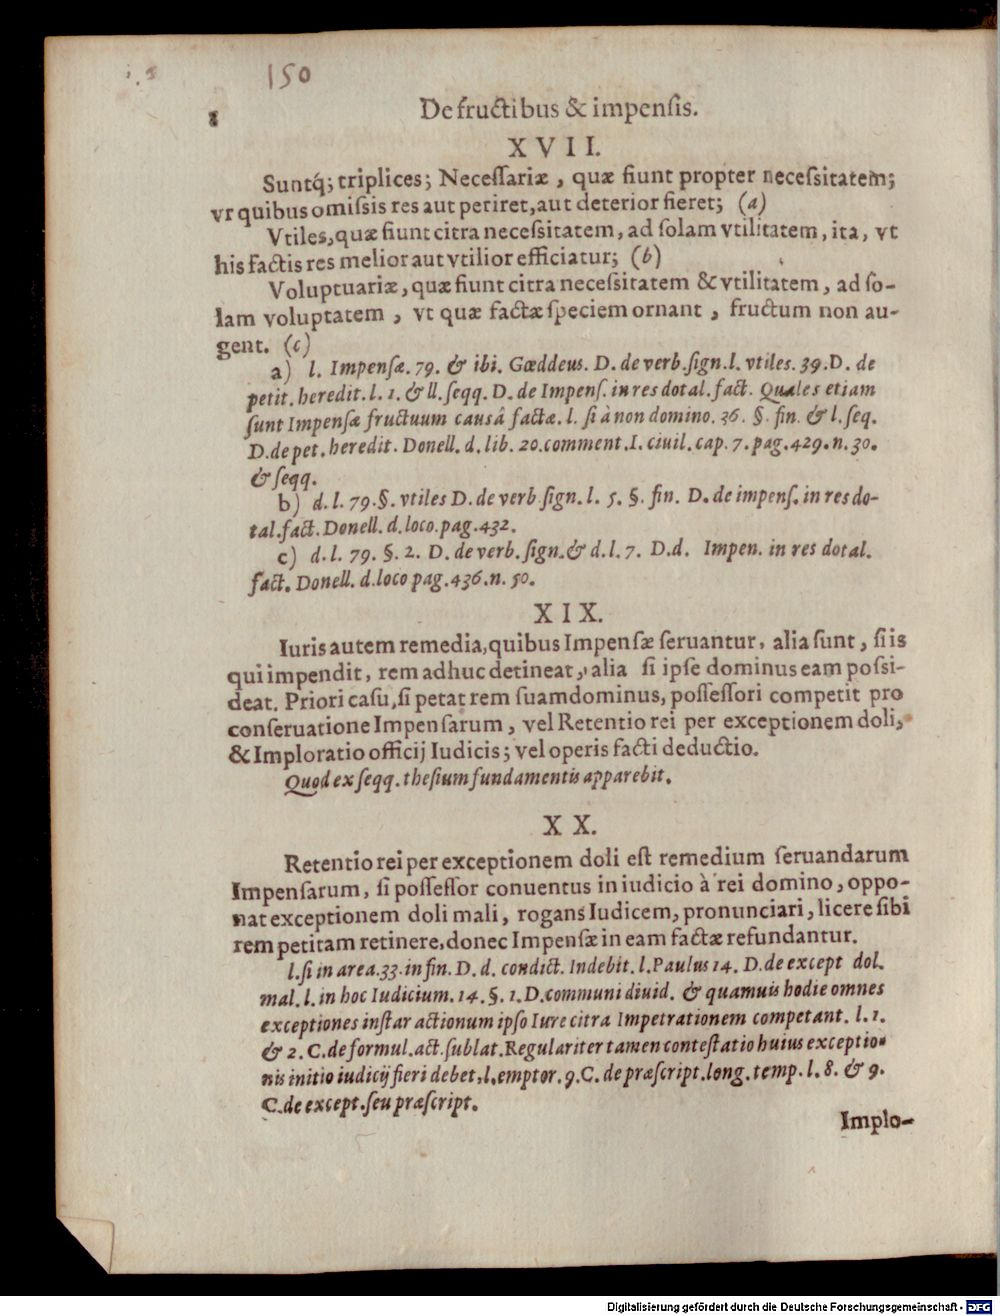 150
8
De fructibus & impensis.
XVII.
Suntq́; triplices; Necessariæ, quæ fiunt propter necessitatem;
vr quibus omissis res aut periret, aut deterior fieret; (a)
Vtiles, quæ fiunt citra necessitatem, ad solam vtilitatem, ita, vt
his factis res melior aut vtilior efficiatur; (b)
Voluptuariæ, quæ fiunt citra necessitatem & vtilitatem, ad so-
lam voluptatem, vt quæ factæ speciem ornant, fructum non au-
gent. (c)
a) l. Impensæ. 79. & ibi. Gœddeus. D. de verb. sign. l. vtiles. 39. D. de
petit. heredit. l. 1. & ll. seqq. D. de Impens. in res dotal. fact. Quales etiam
sunt Impensæ fructuum causâ factæ. l. si à non domino. 36. §. fin. & l. seq.
D. de pet. heredit. Donell. d. lib. 20. comment. I. ciuil. cap. 7. pag. 429. n. 30.
& seqq.
b) d. l. 79. §. vtiles D. de verb. sign. l. 5. §. fin. D. de impens. in res do-
tal. fact. Donell. d. loco. pag. 432.
c) d. l. 79. §. 2. D. de verb. sign. & d. l. 7. D. d. Impen. in res dotal.
fact. Donell. d. loco pag. 436. n. 50.
XIX.
Iuris autem remedia, quibus Impensæ seruantur, alia sunt, si is
qui impendit, rem adhuc detineat, alia si ipse dominus eam possi-
deat. Priori casu, si petat rem suam dominus, possessori competit pro
conseruatione Impensarum, vel Retentio rei per exceptionem doli,
& Imploratio officij Iudicis; vel operis facti deductio.
Quod ex seqq. thesium fundamentis apparebit.
XX.
Retentio rei per exceptionem doli est remedium seruandarum
Impensarum, si possessor conuentus in iudicio à rei domino, oppo-
nat exceptionem doli mali, rogans Iudicem, pronunciari, licere sibi
rem petitam retinere, donec Impensæ in eam factæ refundantur.
l. si in area. 33. in fin. D. d. condict. Indebit. l. Paulus 14. D. de except dol.
mal. l. in hoc Iudicium. 14. §. 1. D. communi diuid. & quamuis hodie omnes
exceptiones instar actionum ipso Iure citra Impetrationem competant. l. 1.
& 2. C. de formul. act. sublat. Regulariter tamen contestatio huius exceptio-
nis initio iudicij fieri debet, l. emptor. 9. C. de præscript. long. temp. l. 8. & 9.
C. de except. seu præscript.
Implo-
Digitalisierung gefördert durch die Deutsche Forschungsgemeinschaft - DFG